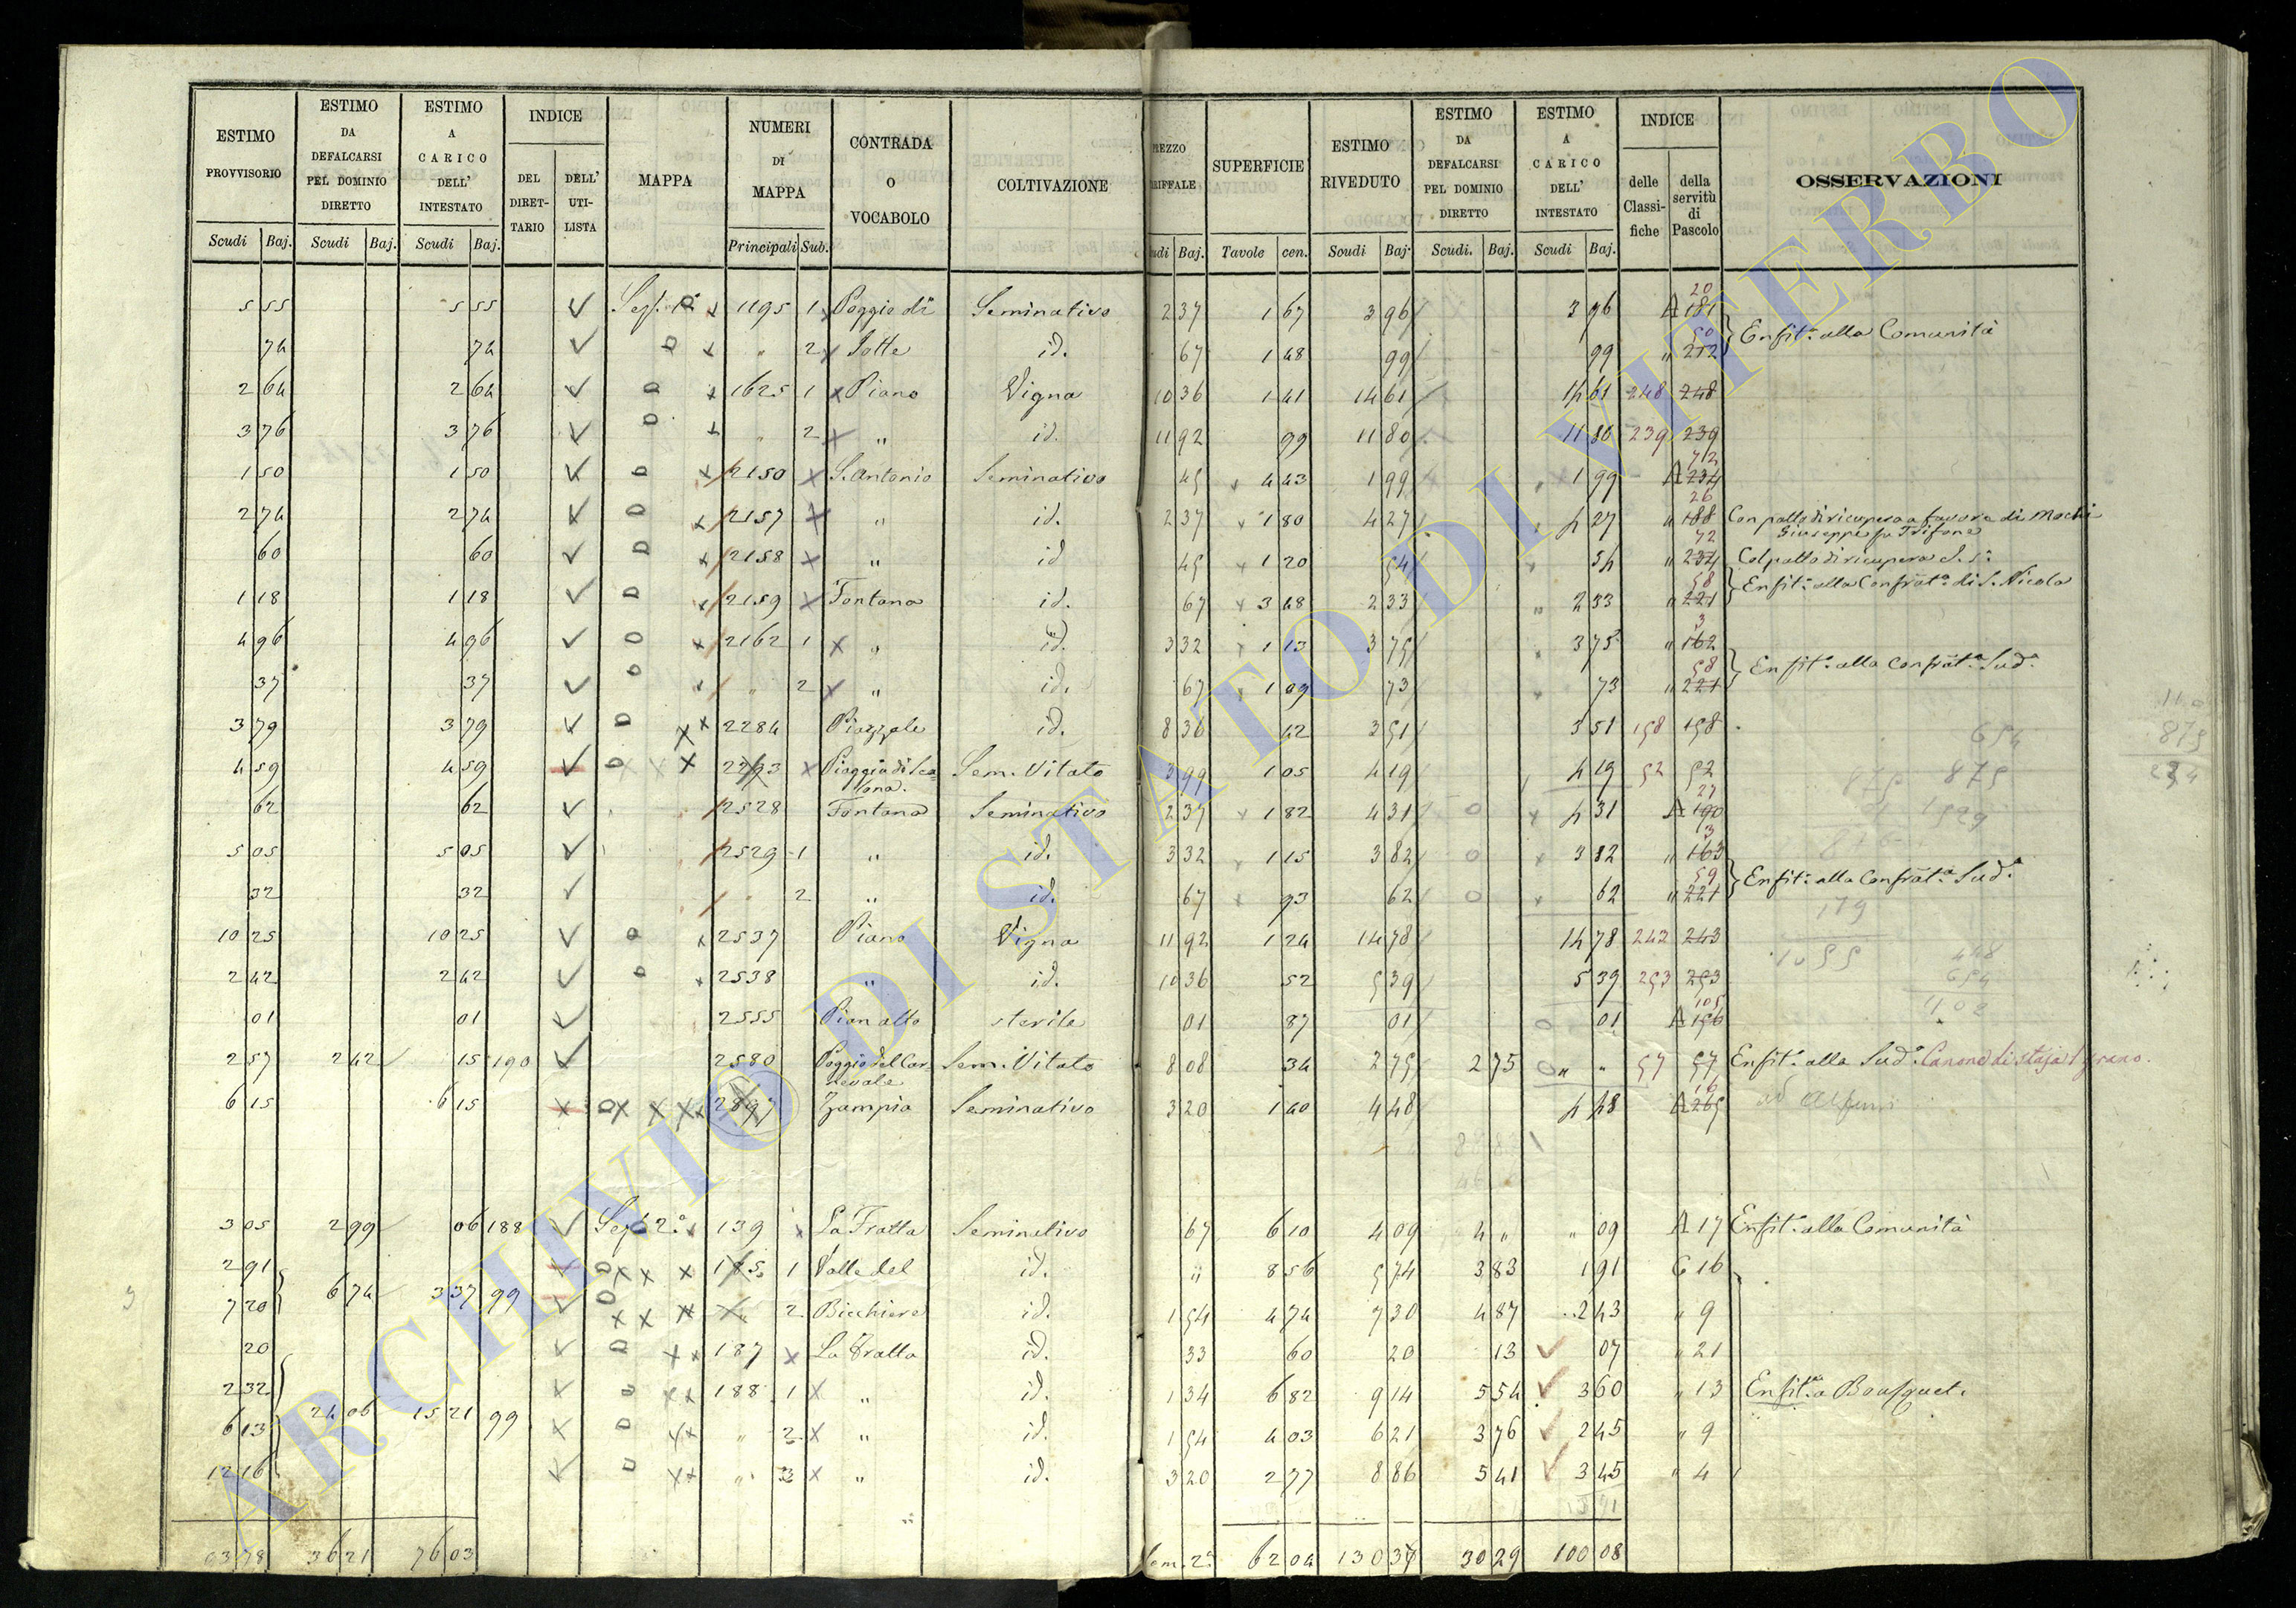 ESTIMO PROVVISORIO | ESTIMO DA DEFALCARSI PEL DOMINIO DIRETTO | ESTIMO A CARICO DELL' INTESTATO | INDICE | MAPPA | NUMERI DI MAPPA | CONTRADA O VOCABOLO | COLTIVAZIONE | REZZO RIFFALE | SUPERFICIE | ESTIMO RIVEDUTO | ESTIMO DA DEFALCARSI PEL DOMINIO DIRETTO | ESTIMO A CARICO DELL' INTESTATO | INDICE | OSSERVAZIONI
DEL DIRET-TARIO | DELL' UTI-LISTA | delle Classi-fiche | della servitù di Pascolo
Scudi | Baj. | Scudi | Baj. | Scudi | Baj. | Principali | Sub. | udi | Baj. | Tavole | cen. | Scudi | Baj. | Scudi. | Baj. | Scudi | Baj.
5 55 | 5 55 | 1195 | 1 | Poggio di | Seminativo | 2 37 | 1 67 | 3 96 | 3 96 | A 181 20
74 | 74 | " | 2 | Sotte | id. | 67 | 1 48 | 99 | 99 | " 212 50 | Enfit.a alla Comunità
2 64 | 2 64 | 1625 | 1 | Piano | Vigna | 10 36 | 1 41 | 14 61 | 14 61 | 248 | 248
3 76 | 3 76 | " | 2 | " | id. | 11 92 | 99 | 11 80 | 11 80 | 239 | 239
1 50 | 1 50 | 2150 | S. Antonio | Seminativo | 45 | 4 43 | 1 99 | 1 99 | A 234 72
2 74 | 2 74 | 2157 | " | id. | 2 37 | 1 80 | 4 27 | 4 27 | " 188 26 | Con patto di ricupera a favore di Mochi Giuseppe fu Trifone
60 | 60 | 2158 | " | id | 45 | 1 20 | 54 | 54 | " 234 72 | Col patto di ricupera S. S.a
1 18 | 1 18 | 2159 | Fontana | id. | 67 | 3 48 | 2 33 | 2 33 | " 221 58 | Enfit.a alla Confrat.a di S. Nicola
4 96 | 4 96 | 2162 | 1 | " | id. | 3 32 | 1 13 | 3 75 | 3 75 | " 162 3
37 | 37 | " | 2 | " | id. | 67 | 1 09 | 73 | 73 | " 221 58 | Enfit.a alla Confrat.a Sud.a
3 79 | 3 79 | 2284 | Piazzale | id. | 8 36 | 42 | 3 51 | 3 51 | 158 | 158
4 59 | 4 59 | 2293 | Sem. Vitato | 3 99 | 1 05 | 4 19 | 4 19 | 52 | 52
62 | 62 | 2528 | Fontana | Seminativo | 2 37 | 1 82 | 4 31 | 4 31 | A 190 27
5 05 | 5 05 | 2529 | 1 | " | id. | 3 32 | 1 15 | 3 82 | 3 82 | " 163 3
32 | 32 | " | 2 | " | id. | 67 | 93 | 62 | 62 | " 221 59 | Enfit.a alla Confrat.a Sud.a
10 25 | 10 25 | 2537 | Piano | Vigna | 11 92 | 1 24 | 14 78 | 14 78 | 242 | 243
2 42 | 2 42 | 2538 | " | id. | 10 36 | 52 | 5 39 | 5 39 | 253 | 253
01 | 01 | 2555 | Pian alto | sterile | 01 | 87 | 01 | 01 | A 156 105
2 57 | 2 42 | 15 | 190 | 2580 | Poggio del Carnevale | Sem. Vitato | 8 08 | 34 | 2 75 | 2 75 | " " | 57 | 57 | Enfit.a alla Sud.a Canone di staja 1 grano.
6 15 | 6 15 | 2897 | Zampia | Seminativo | 3 20 | 1 40 | 4 48 | 4 48 | A 265 16
3 05 | 2 99 | 06 | 188 | 139 | La Fratta | Seminativo | 67 | 6 10 | 4 09 | 4 " | " 09 | A 17 | Enfit.a alla Comunità
2 91 | 185 | 1 | Valle del | id. | " | 8 56 | 5 74 | 3 83 | 1 91 | C 16
7 20 | 6 74 | 3 37 | 99 | " | 2 | Bicchiere | id. | 1 54 | 4 74 | 7 30 | 4 87 | 2 43 | " 9
20 | 187 | La Fratta | id. | 33 | 60 | 20 | 13 | 07 | " 21
2 32 | 188 | 1 | " | id. | 1 34 | 6 82 | 9 14 | 5 54 | 3 60 | " 13 | Enfit.a a Bousquet.
6 13 | 24 06 | 15 21 | 99 | " | 2 | " | id. | 1 54 | 4 03 | 6 21 | 3 76 | 2 45 | " 9
12 16 | " | 3 | " | id. | 3 20 | 2 77 | 8 86 | 5 41 | 3 45 | " 4
93 78 | 36 21 | 76 03 | 62 04 | 130 37 | 30 29 | 100 08
ARCHIVIO DI STATO DI VITERBO